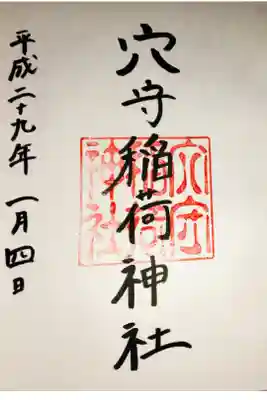 穴守稲荷神社
平成二十九年 一月四日
穴守
稲荷
神社